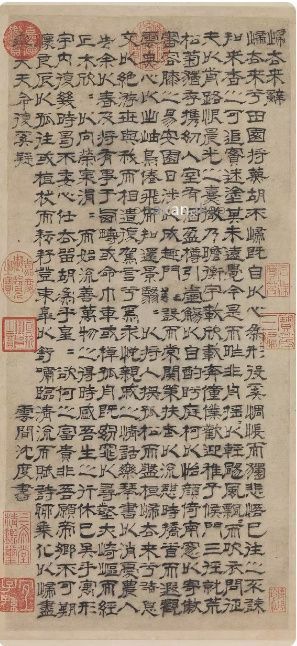 歸去來辭
歸去來兮田園將蕪胡不歸既自以心為形役奚惆悵而獨悲悟已往之不諫
知來者之可追寔迷塗其未遠覺今是而昨非舟搖以輕颺風飄而吹衣問征
夫以前路恨晨光之熹微乃瞻衡宇載欣載奔僮僕歡迎稚子候門三徑就荒
松菊猶存攜幼入室有酒盈樽引壺觴以自酌眄庭柯以怡顏倚南窗以寄傲
審容膝之易安園日涉以成趣門雖設而常關策扶老以流憩時矯首而遐觀
雲無心以出岫鳥倦飛而知還景翳翳以將入撫孤松而盤桓歸去來兮請息
交以絕游世與我而相遺復駕言兮焉求悅親戚之情話樂琴書以消憂農人
告余以春及將有事于西疇或命巾車或棹孤舟既窈窕以尋壑亦崎嶇而經
丘木欣欣以向榮泉涓涓而始流善萬物之得時感吾生之行休已矣乎寓形
宇內復幾時曷不委心任去留胡為乎遑遑欲何之富貴非吾願帝鄉不可期
懷良辰以孤往或植杖而耘耔登東皋以舒嘯臨清流而賦詩聊乘化以歸盡
樂夫天命復奚疑
雲間沈度書